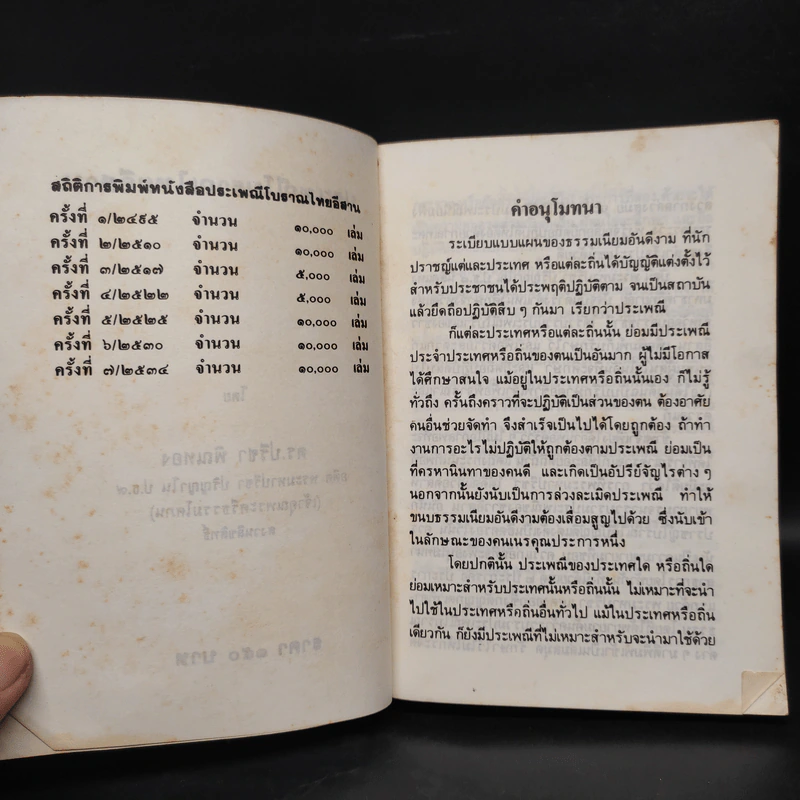 สถิติการพิมพ์หนังสือประเพณีโบราณไทยอีสาน
ครั้งที่ ๑/๒๔๙๕ จำนวน ๑๐,๐๐๐ เล่ม
ครั้งที่ ๒/๒๕๑๐ จำนวน ๑๐,๐๐๐ เล่ม
ครั้งที่ ๓/๒๕๑๗ จำนวน ๕,๐๐๐ เล่ม
ครั้งที่ ๔/๒๕๒๒ จำนวน ๕,๐๐๐ เล่ม
ครั้งที่ ๕/๒๕๒๕ จำนวน ๑๐,๐๐๐ เล่ม
ครั้งที่ ๖/๒๕๓๐ จำนวน ๑๐,๐๐๐ เล่ม
ครั้งที่ ๗/๒๕๓๔ จำนวน ๑๐,๐๐๐ เล่ม
คำอนุโมทนา
ระเบียบแบบแผนของธรรมเนียมอันดีงาม ที่นัก
ปราชญ์แต่และประเทศ หรือแต่ละถิ่นได้บัญญัติแต่งตั้งไว้
สำหรับประชาชนได้ประพฤติปฏิบัติตาม จนเป็นสถาบัน
แล้วยึดถือปฏิบัติสืบ ๆ กันมา เรียกว่าประเพณี
ก็แต่ละประเทศหรือแต่ละถิ่นนั้น ย่อมมีประเพณี
ประจำประเทศหรือถิ่นของตนเป็นอันมาก ผู้ไม่มีโอกาส
ได้ศึกษาสนใจ แม้อยู่ในประเทศหรือถิ่นนั้นเอง ก็ไม่รู้
ทั่วถึง ครั้นถึงคราวที่จะปฏิบัติเป็นส่วนของตน ต้องอาศัย
คนอื่นช่วยจัดทำ จึงสำเร็จเป็นไปได้โดยถูกต้อง ถ้าทำ
งานการอะไรไม่ปฏิบัติให้ถูกต้องตามประเพณี ย่อมเป็น
ที่ครหานินทาของคนดี และเกิดเป็นอัปรีย์จัญไรต่าง ๆ
นอกจากนั้นยังนับเป็นการล่วงละเมิดประเพณี ทำให้
ขนบธรรมเนียมอันดีงามต้องเสื่อมสูญไปด้วย ซึ่งนับเข้า
ในลักษณะของคนเนรคุณประการหนึ่ง
โดยปกตินั้น ประเพณีของประเทศใด หรือถิ่นใด
ย่อมเหมาะสำหรับประเทศนั้นหรือถิ่นนั้น ไม่เหมาะที่จะนำ
ไปใช้ในประเทศหรือถิ่นอื่นทั่วไป แม้ในประเทศหรือถิ่น
เดียวกัน ก็ยังมีประเพณีที่ไม่เหมาะสำหรับจะนำมาใช้ด้วย